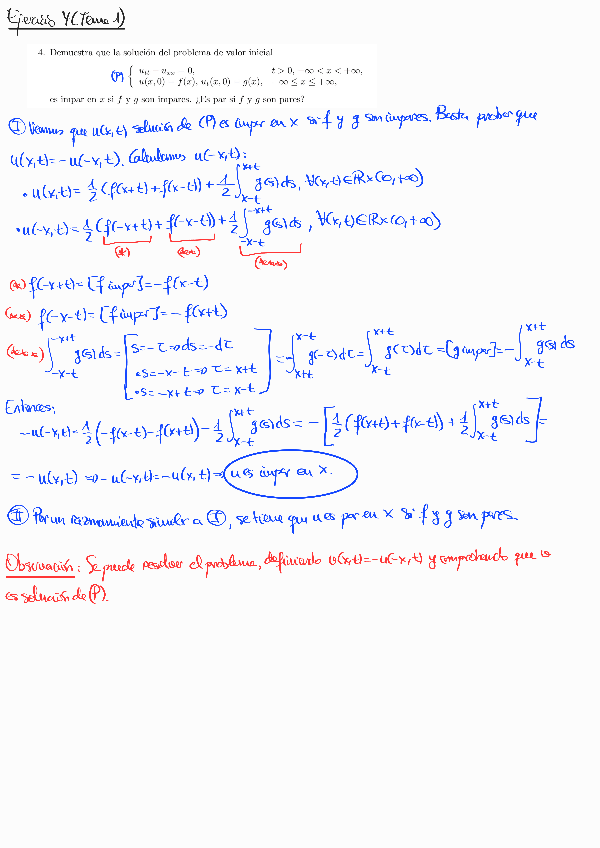 Ejercicio 4 (Tema 1)
4. Demuestra que la solución del problema de valor inicial
(P) { u_tt − u_xx = 0, t > 0, −∞ < x < +∞,
u(x,0) = f(x), u_t(x,0) = g(x), −∞ ≤ x ≤ +∞,
es impar en x si f y g son impares. ¿Es par si f y g son pares?
(I) Veamos que u(x,t) solución de (P) es impar en x si f y g son impares. Basta probar que
u(x,t)=-u(-x,t). Calculamos u(-x,t):
• u(x,t)= 1/2 (f(x+t)+f(x-t)) + 1/2 ∫_{x-t}^{x+t} g(s)ds, ∀(x,t)∈ℝ×(0,+∞)
• u(-x,t)= 1/2 (f(-x+t)+f(-x-t)) + 1/2 ∫_{-x-t}^{-x+t} g(s)ds, ∀(x,t)∈ℝ×(0,+∞)
(*) (**) (***)
(*) f(-x+t)=[f impar]=-f(x-t)
(**) f(-x-t)=[f impar]=-f(x+t)
(***) ∫_{-x-t}^{-x+t} g(s)ds = [s=-τ ⇒ ds=-dτ
• s=-x-t ⇒ τ=x+t
• s=-x+t ⇒ τ=x-t] = -∫_{x+t}^{x-t} g(-τ)dτ = ∫_{x-t}^{x+t} g(τ)dτ = [g impar] = -∫_{x-t}^{x+t} g(s)ds
Entonces,
-u(-x,t)= 1/2 (-f(x-t)-f(x+t)) - 1/2 ∫_{x-t}^{x+t} g(s)ds = -[1/2 (f(x+t)+f(x-t)) + 1/2 ∫_{x-t}^{x+t} g(s)ds] =
= -u(x,t) ⇒ -u(-x,t)=-u(x,t) ⇒ u es impar en x.
(II) Por un razonamiento similar a (I), se tiene que u es par en x si f y g son pares.
Observación: Se puede resolver el problema, definiendo v(x,t)=-u(-x,t) y comprobando que v
es solución de (P).